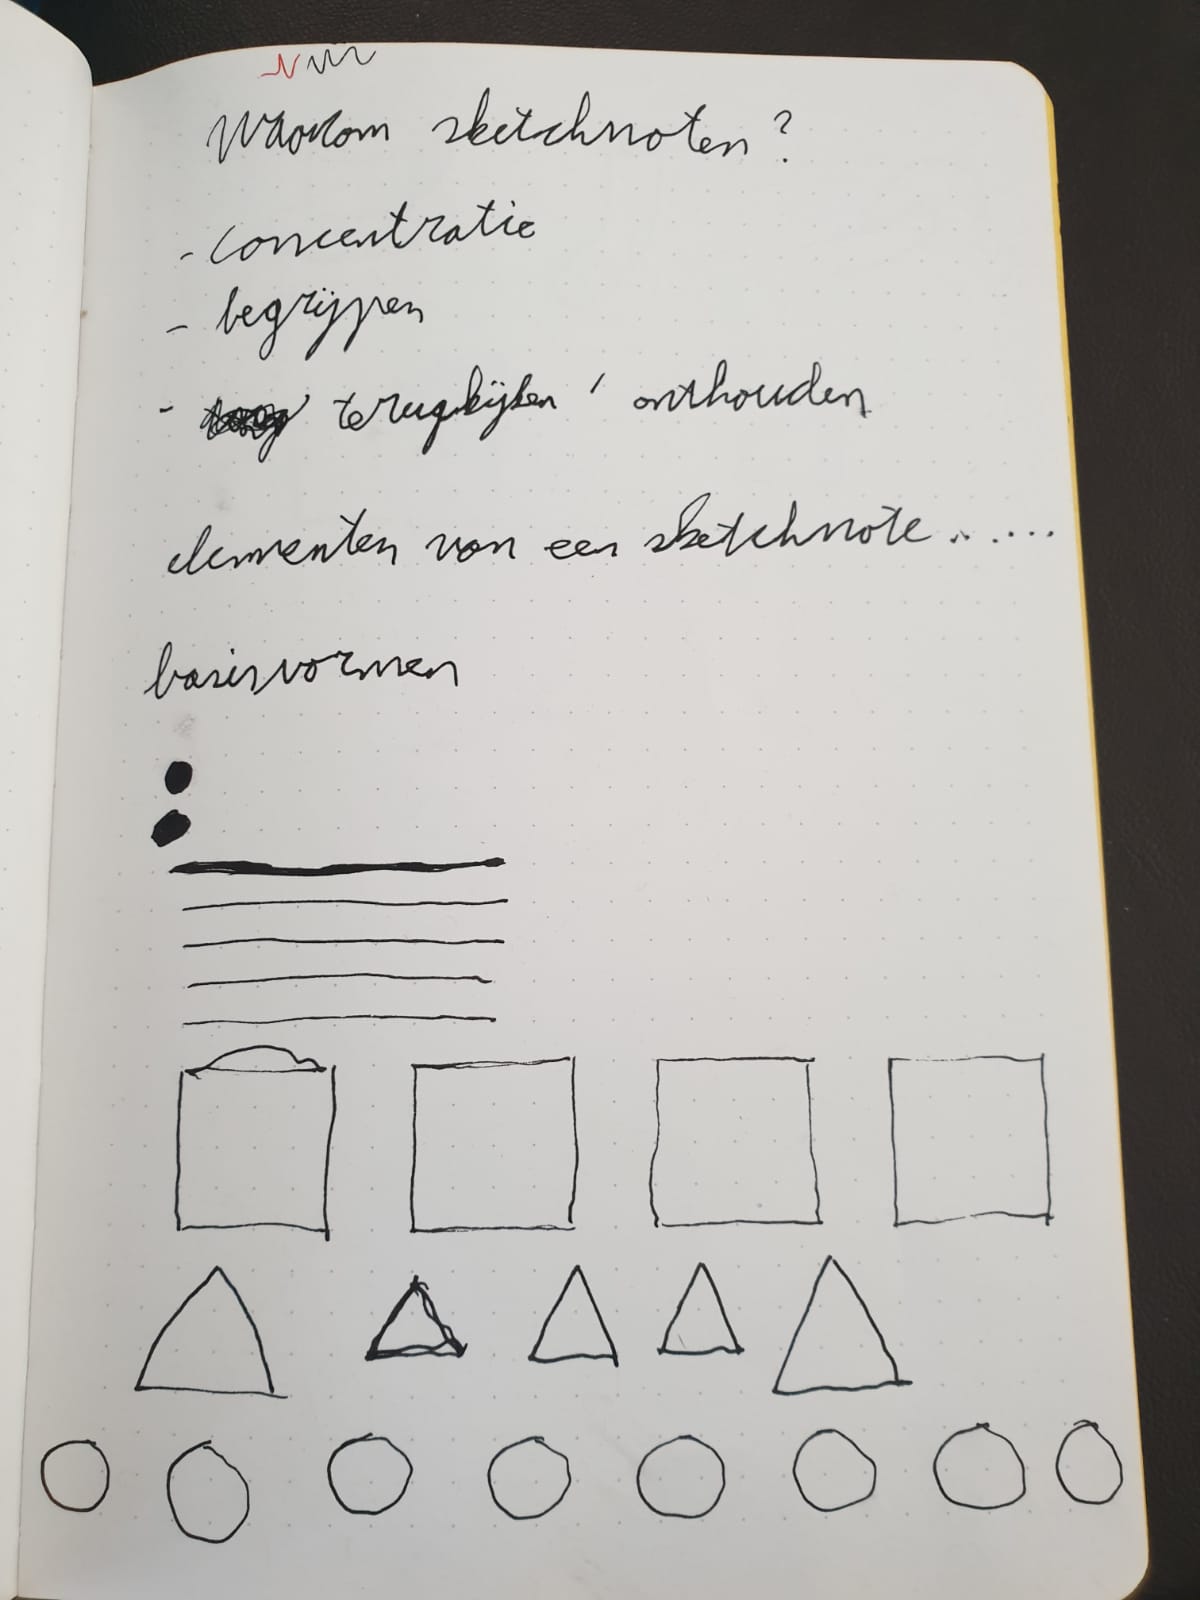 Waarom sketchnoten?
- concentratie
- begrijpen
- terugkijken / onthouden
elementen van een sketchnote......
basisvormen